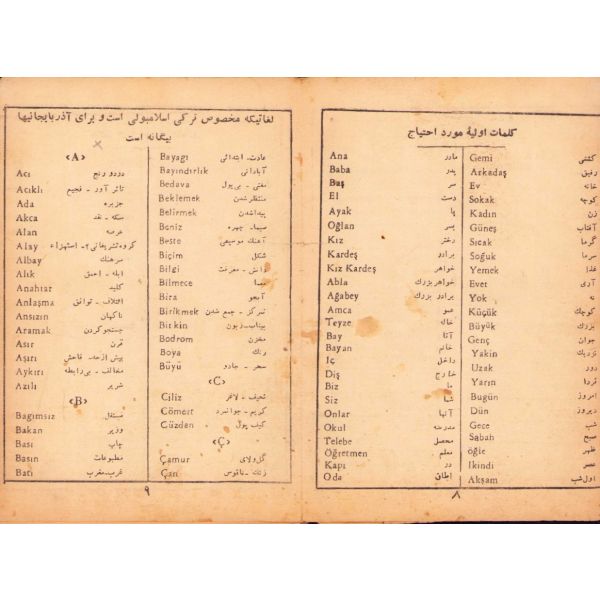 کلمات اولیه مورد احتیاج
Ana مادر
Baba پدر
Baş سر
El دست
Ayak پا
Oğlan پسر
Kız دختر
Kardeş برادر
Kız Kardeş خواهر
Abla خواهر بزرگ
Ağabey برادر بزرگ
Amca عمو
Teyze خاله
Bay آقا
Bayan خانم
Iç داخل
Diş خارج
Biz ما
Siz شما
Onlar آنها
Okul مدرسه
Telebe محصل
Öğretmen معلم
Kapı در
Oda اطاق
Gemi کشتی
Arkadaş رفیق
Ev خانه
Sokak کوچه
Kadın زن
Güneş آفتاب
Sıcak گرما
Soğuk سرما
Yemek غذا
Evet آری
Yok نه
Küçük کوچک
Büyük بزرگ
Genç جوان
Yakin نزدیک
Uzak دور
Yarın فردا
Bugün امروز
Dün دیروز
Gece شب
Sabah صبح
öğle ظهر
Ikindi عصر
Akşam اول شب
۸
لغاتیکه مخصوص ترکی اسلامبولی است و برای آذربایجانیها
بیگانه است
‹A›
Acı درد و رنج
Acıklı تاثر آور - فجیع
Ada جزیره
Akca سکه - نقد
Alan عرصه
Alay
Albay سرهنگ
Alık ابله - احمق
Anahtar کلید
Anlaşma ائتلاف - توافق
Ansızın ناگهان
Aramak جستجو کردن
Asır قرن
Aşırı بیش از حد - فاحش
Aykırı مخالف - بی رابطه
Azılı شریر
‹B›
Bagımsız مستقل
Bakan وزیر
Bası چاپ
Basın مطبوعات
Batı غرب - مغرب
Bayagı عادت - ابتدائی
Bayındırlık آبادانی
Bedava مفتی - بی پول
Beklemek منتظر شدن
Belirmek پیدا شدن
Beniz سیما - چهره
Beste آهنگ موسیقی
Biçim شکل
Bilgi دانش - معرفت
Bilmece معما
Bira آبجو
Birikmek تمرکز - جمع شدن
Bitkin بیتاب - زبون
Bodrom
Boya رنگ
Büyü سحر - جادو
‹C›
Çiliz نحیف - لاغر
Cömert کریم - جوانمرد
Cüzden کیف پول
‹Ç›
Çamur گل و لای
Çan زنگ - ناقوس
۹